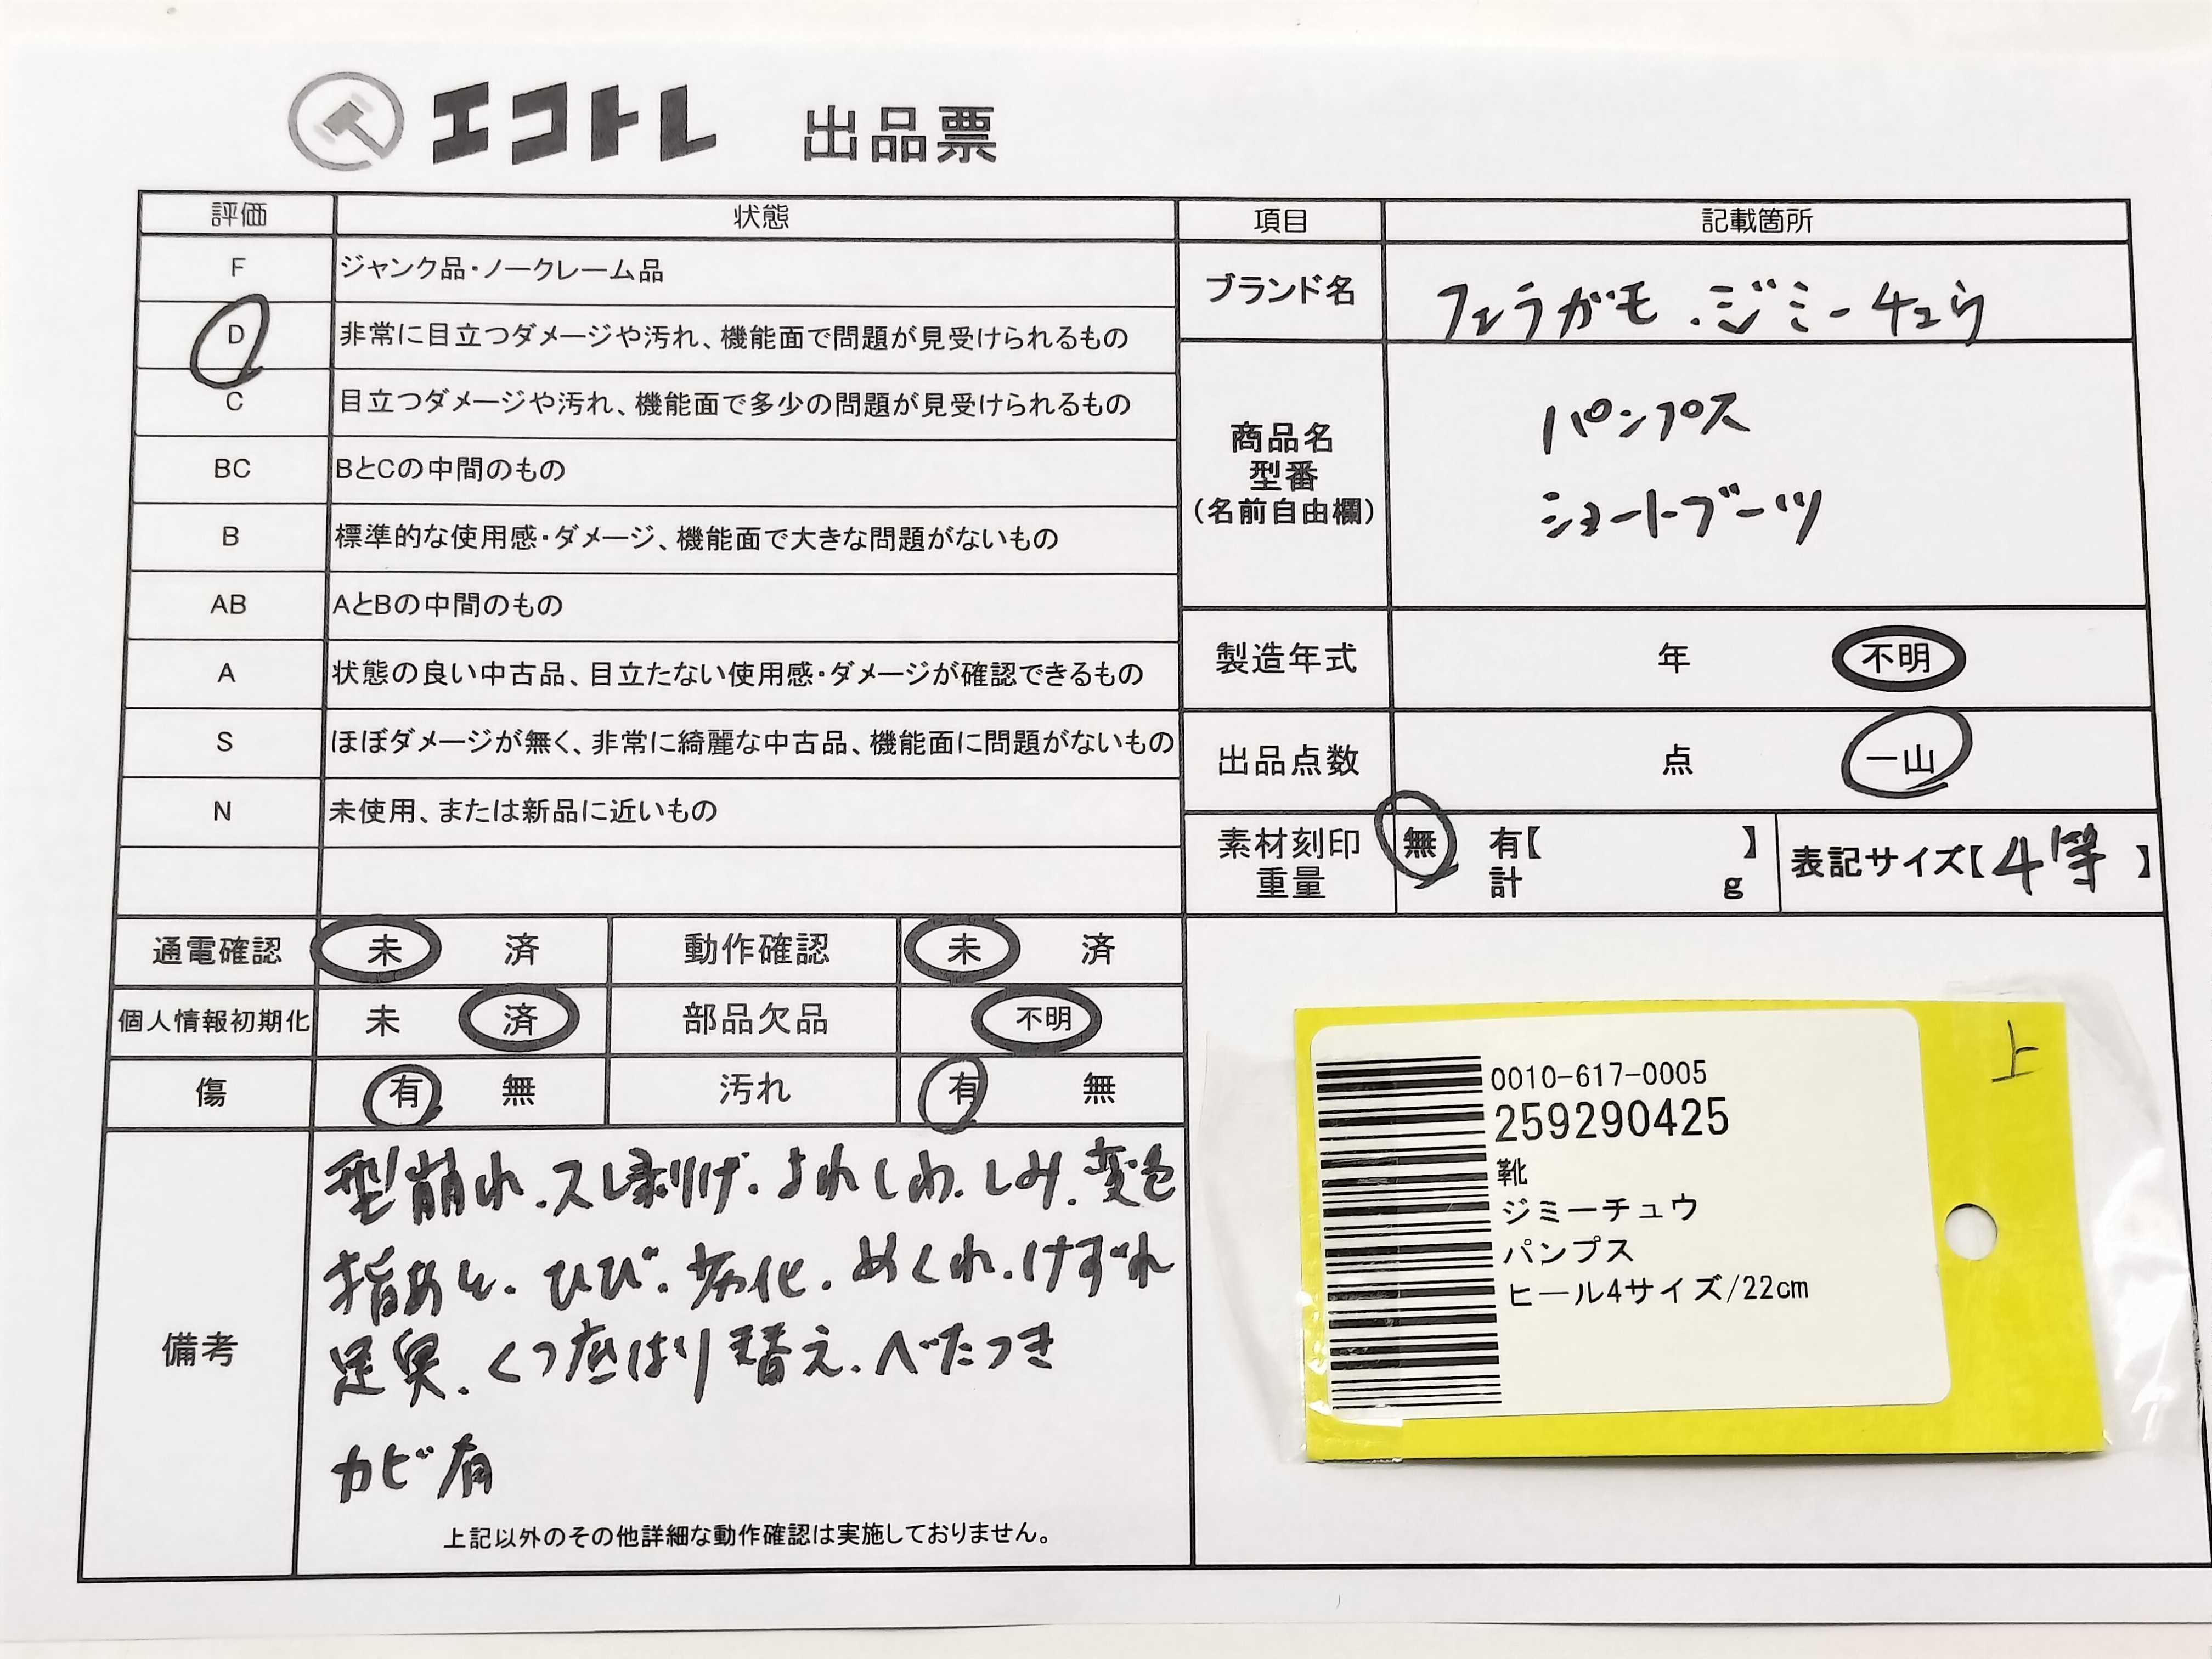 エコトレ 出品票
評価 状態
F ジャンク品・ノークレーム品
D 非常に目立つダメージや汚れ、機能面で問題が見受けられるもの
C 目立つダメージや汚れ、機能面で多少の問題が見受けられるもの
BC BとCの中間のもの
B 標準的な使用感・ダメージ、機能面で大きな問題がないもの
AB AとBの中間のもの
A 状態の良い中古品、目立たない使用感・ダメージが確認できるもの
S ほぼダメージが無く、非常に綺麗な中古品、機能面に問題がないもの
N 未使用、または新品に近いもの
項目 記載箇所
ブランド名 フェラガモ.ジミーチュウ
商品名
型番
(名前自由欄)
パンプス
ショートブーツ
製造年式 年 不明
出品点数 点 一山
素材刻印 無 有【 】
重量 計 g
表記サイズ【4等】
通電確認 未 済 動作確認 未 済
個人情報初期化 未 済 部品欠品 不明
傷 有 無 汚れ 有 無
備考
型崩れ.スレ剥げ.よれしわ.しみ.変色
指あと.ひび.劣化.めくれ.けずれ
足臭.くつ底はり替え.べたつき
カビ有
上記以外のその他詳細な動作確認は実施しておりません。
上
0010-617-0005
259290425
靴
ジミーチュウ
パンプス
ヒール4サイズ/22cm